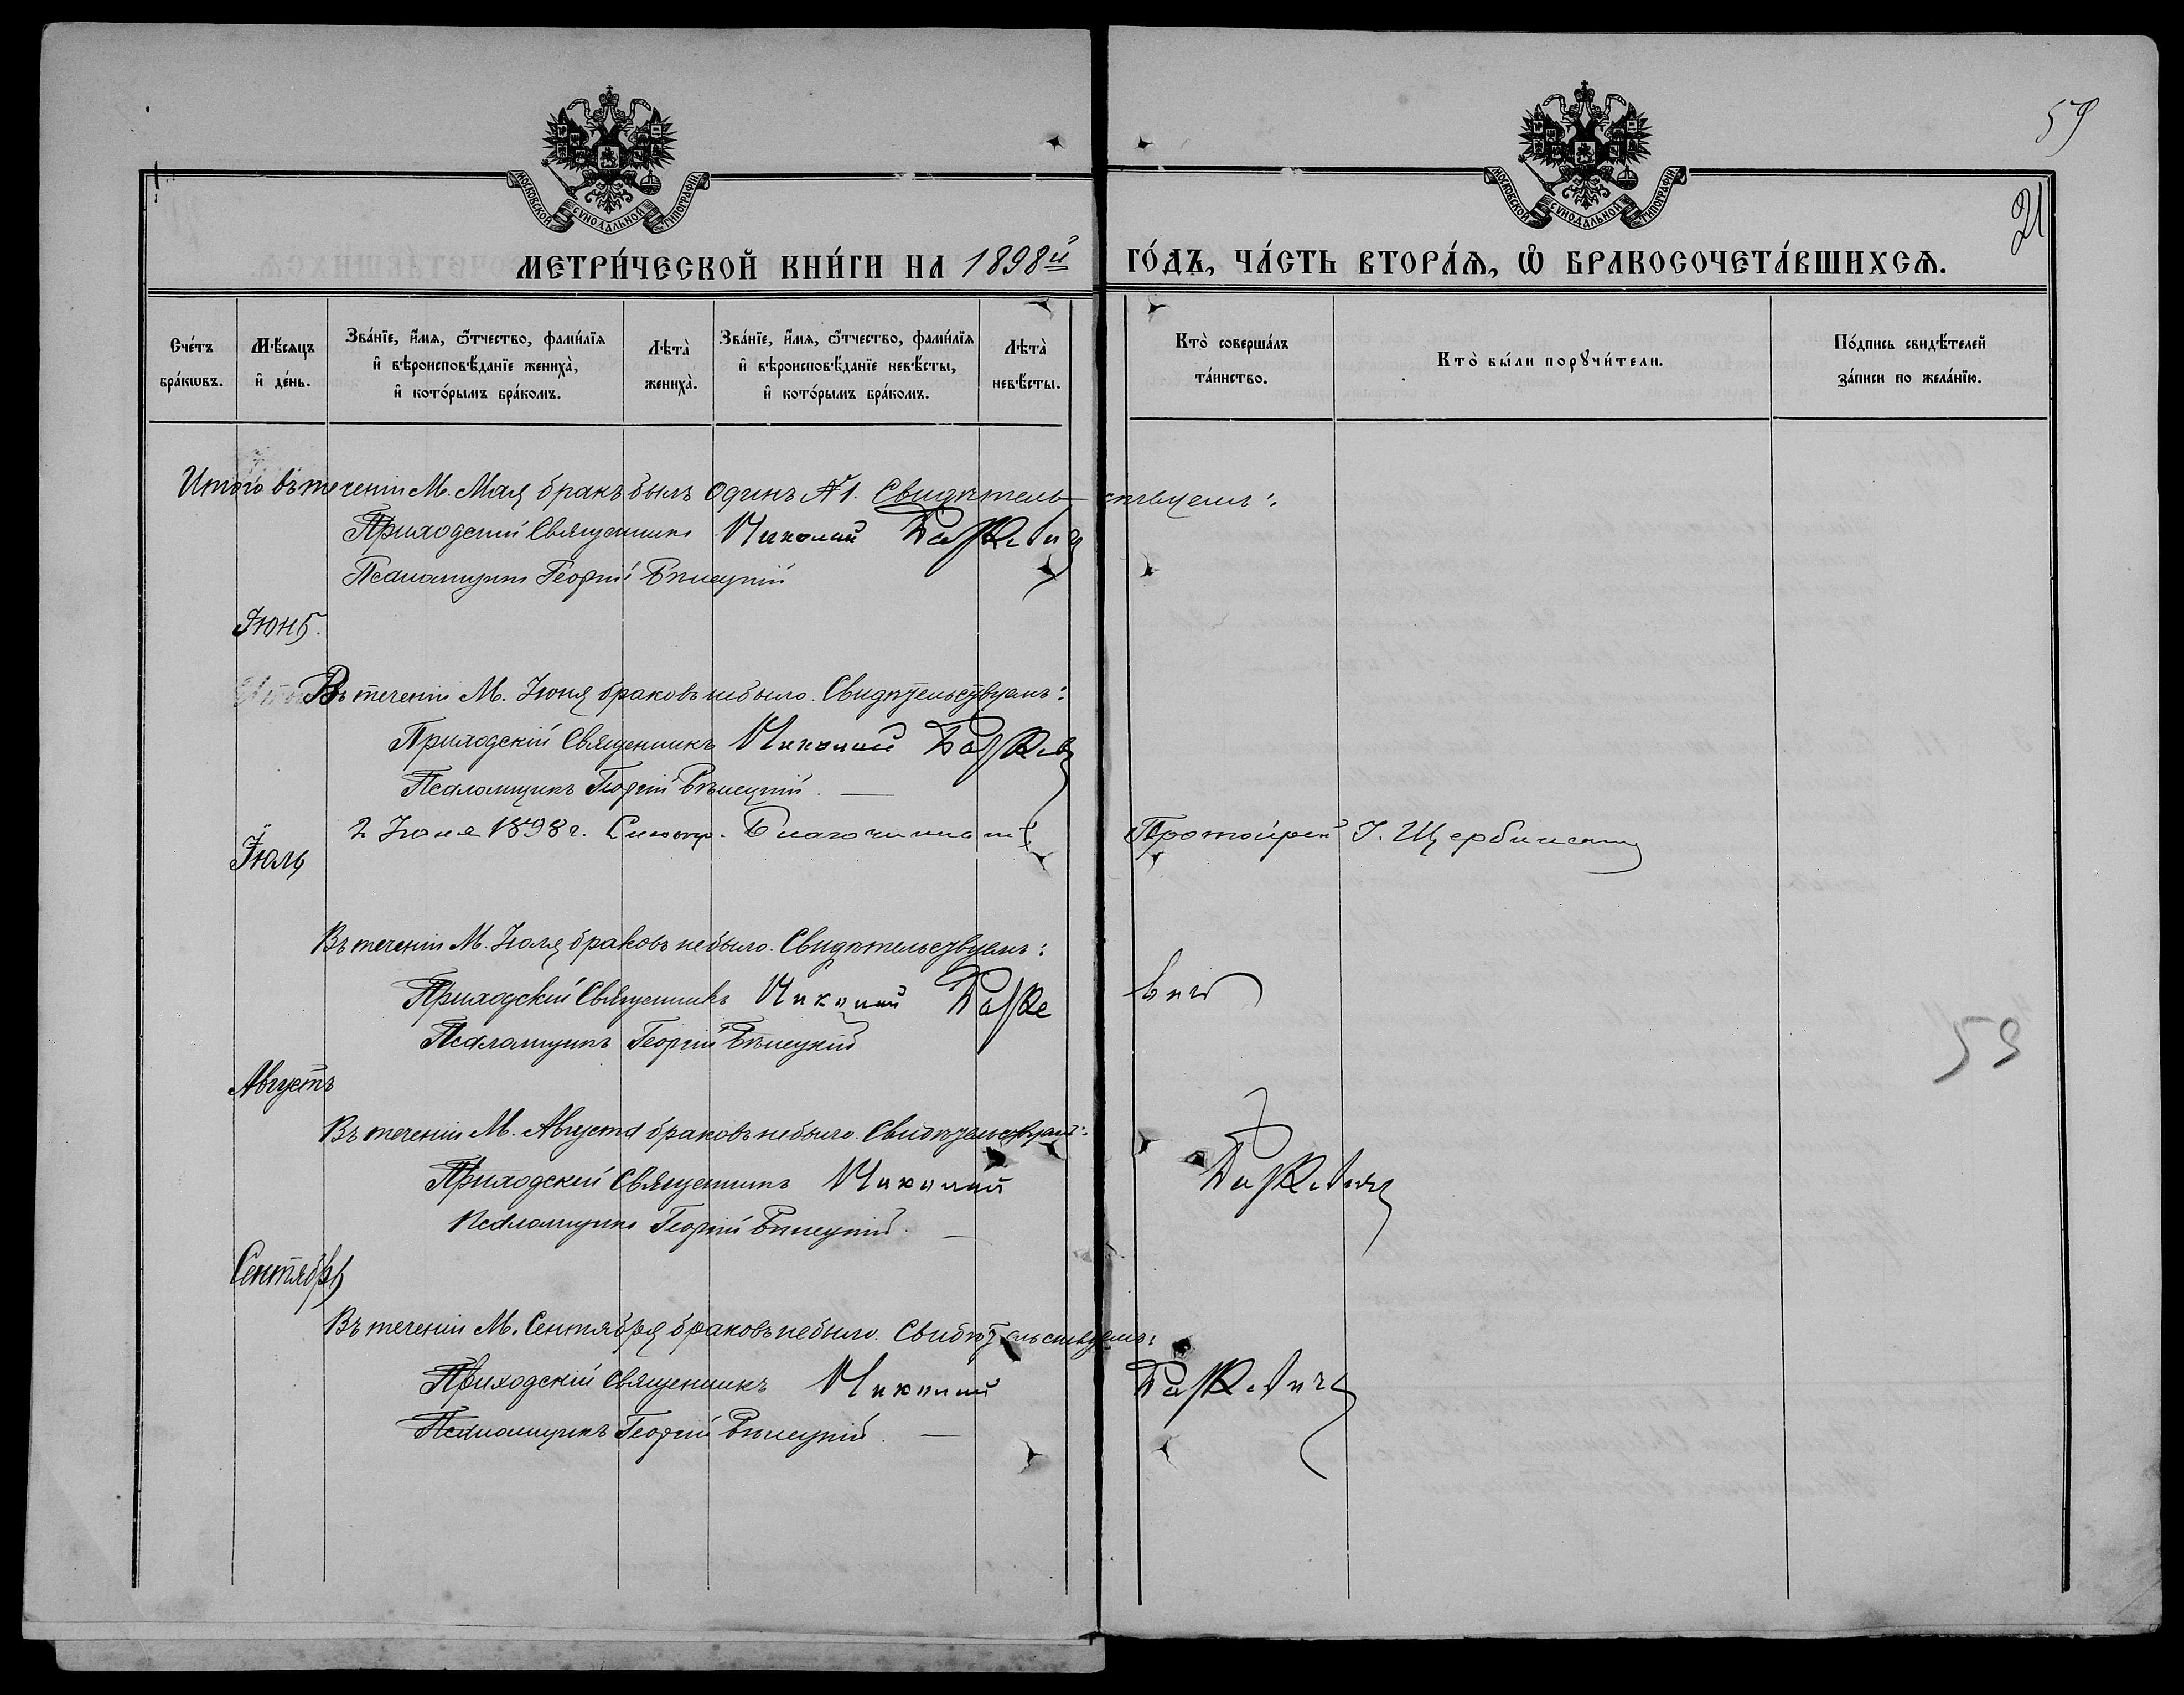 59
21
МОСКОВСКОЙ СѴНОДАЛЬНОЙ ТИПОГРАФІИ
МОСКОВСКОЙ СѴНОДАЛЬНОЙ ТИПОГРАФІИ
МЕТРИ́ЧЕСКОЙ КНИ́ГИ НА 1898й ГО́ДЪ, ЧА́СТЬ ВТОРА́Ѧ, Ѽ БРАКОСОЧЕТА́ВШИХСѦ.
Сче́тъ бра́кѡвъ.
Мѣ́сяцъ и҆ де́нь.
Зва́нїе, и҆́мѧ, ѻ҆́тчество, фами́лїѧ и҆ вѣроисповѣ́данїе жениха̀, и҆ кото́рымъ бра́комъ.
Лѣта̀ жениха̀.
Зва́нїе, и҆́мѧ, ѻ҆́тчество, фами́лїѧ и҆ вѣроисповѣ́данїе невѣ́сты, и҆ кото́рымъ бра́комъ.
Лѣта̀ невѣ́сты.
Кто̀ соверша́лъ та́инство.
Кто̀ бы́ли порꙋчи́тели.
По́дпись свидѣ́телей за́писи по жела́нїю.
Итого въ теченіи М. Мая бракъ былъ одинъ №1. Свидѣтельствуемъ:
Приходскій Священникъ Николай
Псаломщикъ Георгій
Іюнь.
Въ теченіи М. Іюня браковъ небыло. Свидѣтельствуемъ:
Приходскій Священникъ Николай
Псаломщикъ Георгій
2 Іюня 1898 г. Смотр. Благочинный Протоіерей І.
Іюль
Въ теченіи М. Іюля браковъ небыло. Свидѣтельствуемъ:
Приходскій Священникъ Николай
Псаломщикъ Георгій
59
Августъ
Въ теченіи М. Августа браковъ небыло. Свидѣтельствуемъ:
Приходскій Священникъ Николай
Псаломщикъ Георгій
Сентябрь
Въ теченіи М. Сентября браковъ небыло. Свидѣтельствуемъ:
Приходскій Священникъ Николай
Псаломщикъ Георгій